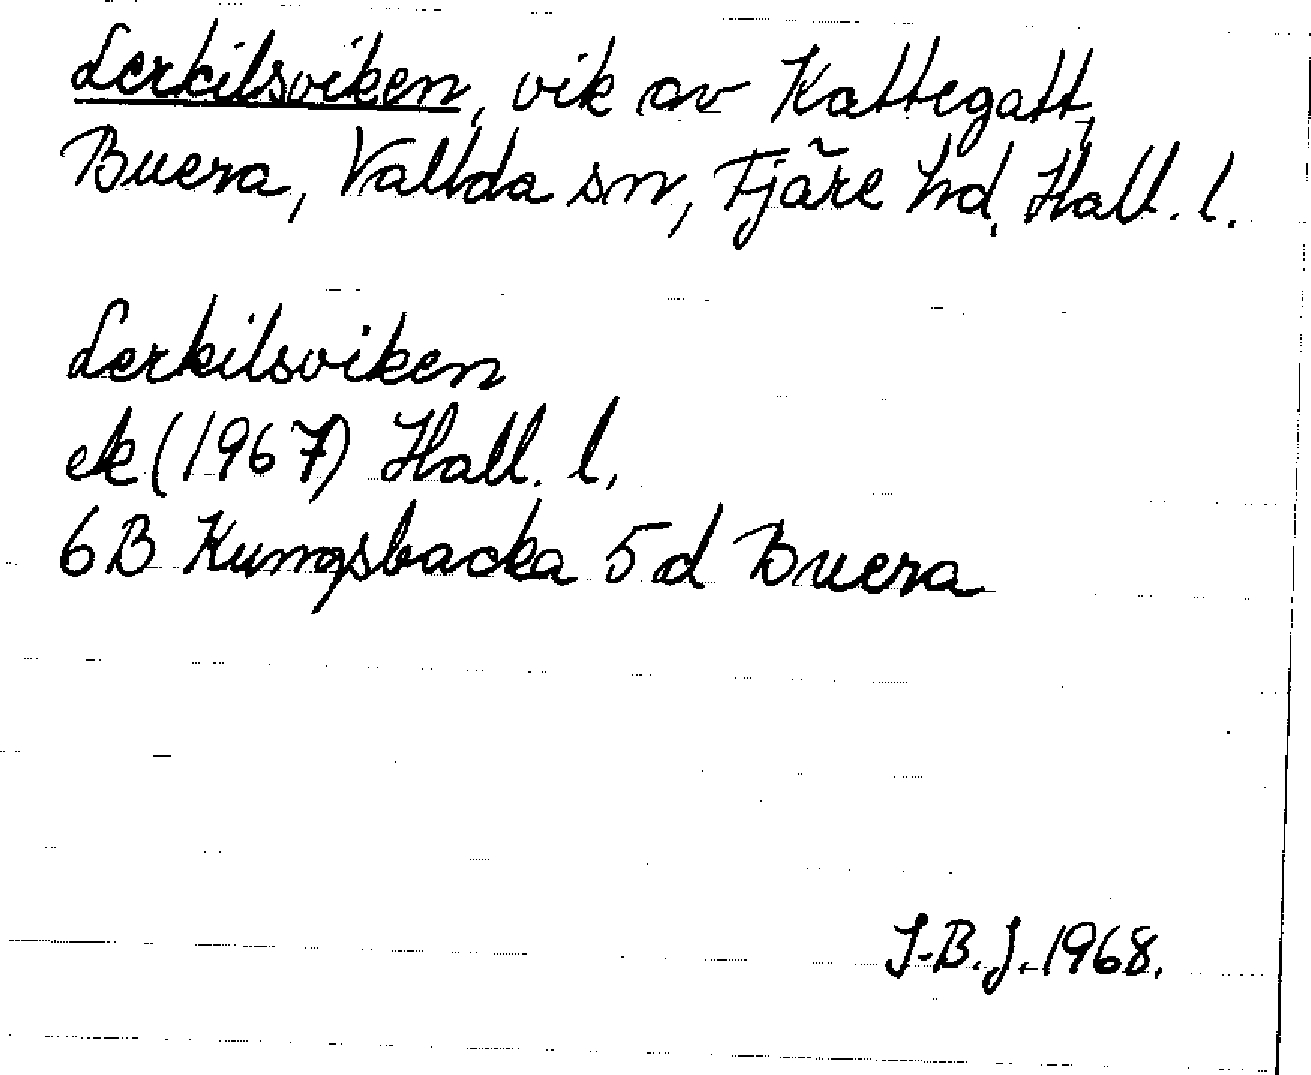 Lerkilsviken, vik av Kattegatt,
Buera, Vallda sn, Fjäre hd, Hall. l.
Lerkilsviken
ek (1967) Hall. l.
6B Kungsbacka 5d Buera
I-B. J. 1968.